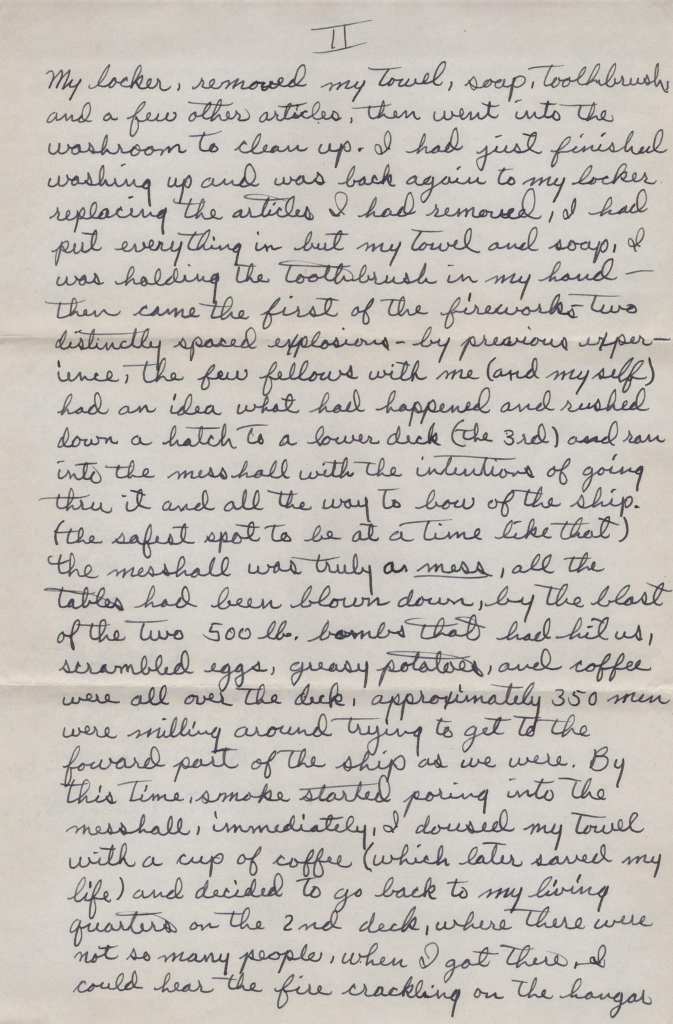 II
My locker, removed my towel, soap, toothbrush,
and a few other articles, then went into the
washroom to clean up. I had just finished
washing up and was back again to my locker
replacing the articles I had removed, I had
put everything in but my towel and soap, I
was holding the toothbrush in my hand —
then came the first of the fireworks two
distinctly spaced explosions - by previous exper-
ience, the few fellows with me (and my self)
had an idea what had happened and rushed
down a hatch to a lower deck (the 3rd) and ran
into the messhall with the intentions of going
thru it and all the way to bow of the ship.
(the safest spot to be at a time like that)
the messhall was truly a mess, all the
tables had been blown down, by the blast
of the two 500 lb. bombs that had hit us,
scrambled eggs, greasy potatoes, and coffee
were all over the deck, approximately 350 men
were milling around trying to get to the
foward part of the ship as we were. By
this time, smoke started poring into the
messhall, immediately, I doused my towel
with a cup of coffee (which later saved my
life) and decided to go back to my living
quarters on the 2nd deck, where there were
not so many people, when I got there, I
could hear the fire crackling on the hangar